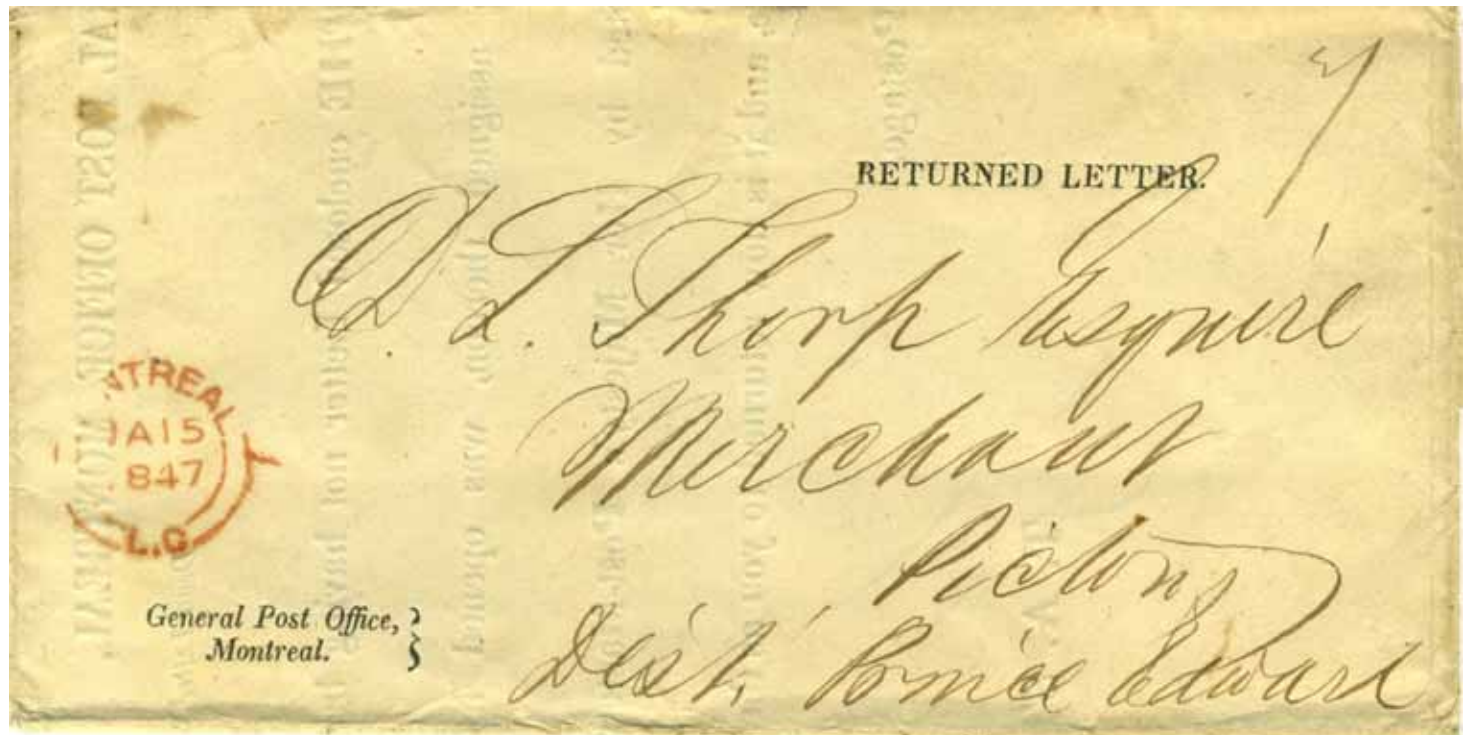 RETURNED LETTER.
D. L. Thorp Esquire
Merchant
Picton
Dist. Prince Edward
NTREAL
JA 15
1847
L.C
General Post Office,
Montreal.